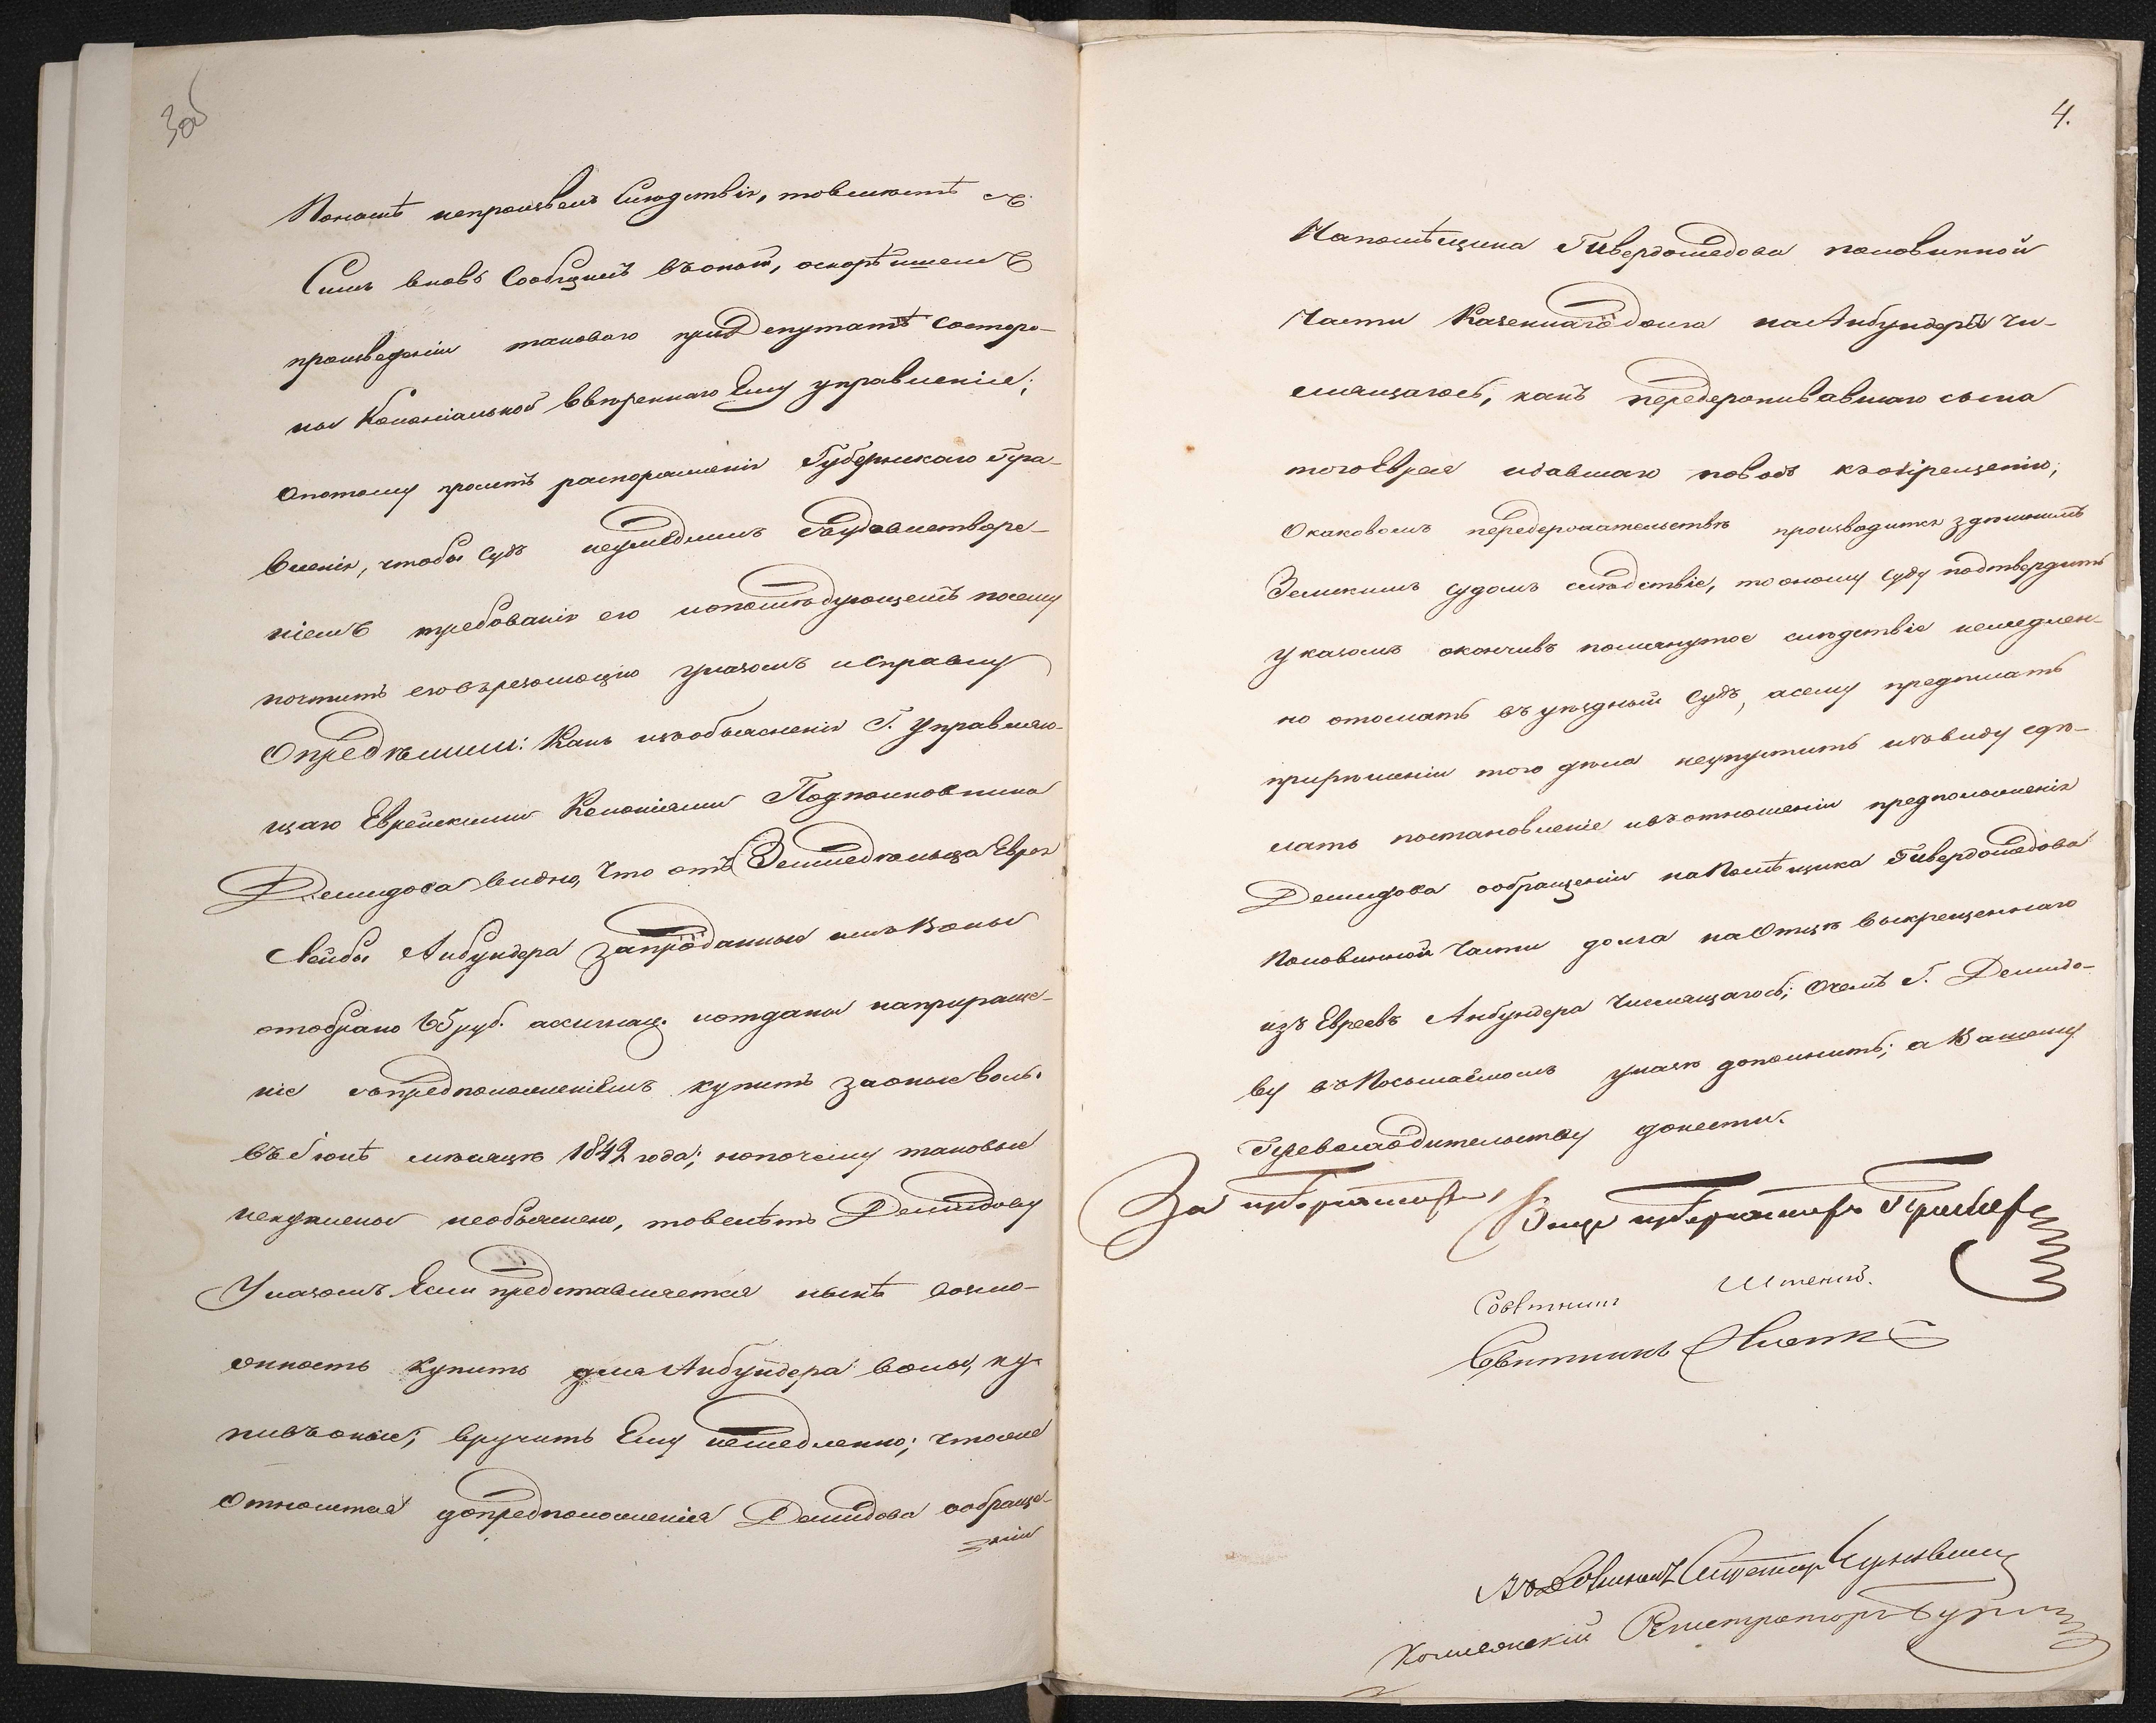 3об
Понынѣ непроизвелъ Слѣдствія, то вмѣстѣ съ
Симъ вновь Сообщилъ въ оный, о скорѣйшемъ
произведеніи таковаго при Депутатѣ со сторо-
ны Колоніальной ввѣреннаго Ему управленія;
Апотому проситъ распоряженія Губернскаго Пра-
вленія, чтобы Судъ немедлилъ Удовлетворе-
ніемъ требованія его и о послѣдующемъ по сему
почтить его въ резолюцію указомъ и Справку
Опредѣлили: Какъ изъ объясненія Г. Управляю-
щаго Еврейскими Колоніями Подполковника
Демидова видно, что отъ Земледѣльца Еврея
Лейбы Анбундера за проданные имъ Волы
отобрано 65 руб. ассигнац. и отданы на прираще-
ніе съ предположеніемъ купить за оные волы
въ Іюнѣ мѣсяцѣ 1842 года; но почему таковые
некуплены необъяснено, то велѣть Демидову
Указомъ Если представляется нынѣ возмо-
жность купить для Анбундера волы, ку-
пивъ оные, вручить Ему немедленно; что же
Относится до предположенія Демидова о обраще-
ніи
4.
На помѣщика Твердомедова половинной
Части Казеннаго долга на Анбундерѣ чи-
слящагося, какъ передерживавшаго сына
того Еврея и давшаго поводъ къ окрещенію;
О каковомъ передержательствѣ производится здѣшнимъ
Земскимъ Судомъ слѣдствіе, то оному Суду подтвердить
указомъ окончивъ помянутое слѣдствіе немедлен-
но отослать въ уѣздный Судъ, а сему предписать
при рѣшеніи того дѣла неупустить изъ виду сдѣ-
лать постановленіе и въ отношеніи предположенія
Демидова о обращеніи на Помѣщика Твердомедова
Половинной Части долга на Отцѣ выкрещеннаго
изъ Евреевъ Анбундера Числящагося; О чемъ Г. Демидо-
ву въ Посылаемомъ указѣ дополнить; а Вашему
Превосходительству донести.
За Губернатора, Вице Губернаторъ
Совѣтникъ
Совѣтникъ
Коллежскій Регистраторъ